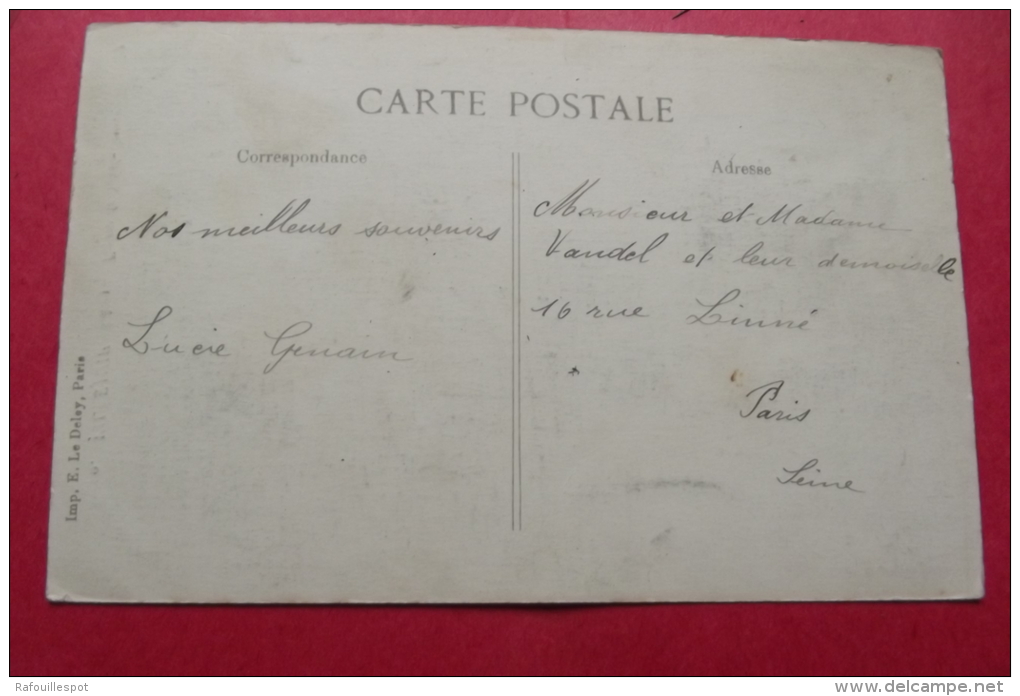 CARTE POSTALE
Correspondance
Nos meilleurs souvenirs
Lucie Genain
Imp. E. Le Deley, Paris
Adresse
Monsieur et Madame
Vandel et leur demoiselle
16 rue Linné
Paris
Seine
Rafouillespot
www.delcampe.net